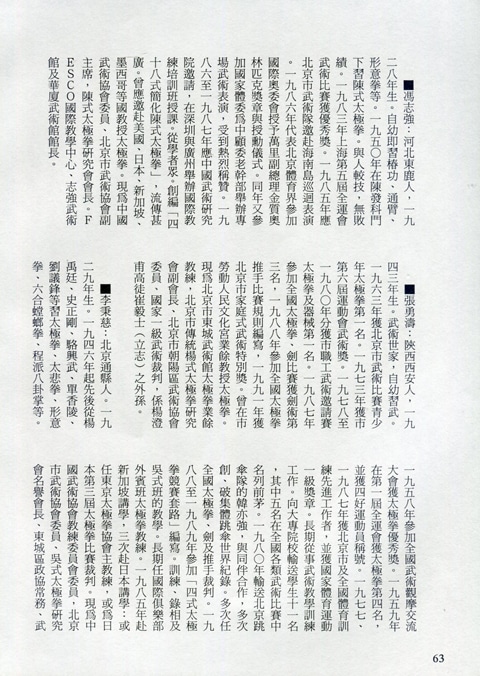 ■馮志強：河北東鹿人，一九
二八年生。自幼即習樁功、通臂、
形意拳等。一九五〇年在陳發科門
下習陳式太極拳。與人較技，無敗
績。一九八三年上海第五屆全運會
武術比賽獲優秀獎。一九八五年應
北京市武術隊邀赴海南島巡迴表演
。一九八六年代表北京體育界參加
國際奧委會授予萬里副總理金質奧
林匹克獎章與授勳儀式。同年又參
加國家體委為中顧委老幹部舉辦專
場武術表演，受到熱烈稱贊。一九
八六至一九八七年應中國武術研究
院邀請，在深圳與廣州舉辦國際教
練培訓班授課。從學者眾。創編「四
十八式簡化陳式太極拳」，流傳甚
廣。曾應邀赴美國、日本、新加坡、
墨西哥等國教授太極拳。現為中國
武術協會委員、北京市武術協會副
主席，陳式太極拳研究會會長。F
ESCO國際教學中心、志強武術
館及華夏武術館館長。
■張勇濤：陝西西安人，一九
四三年生。武術世家，自幼習武。
一九六三年獲北京市武術比賽青少
年太極拳第一名。一九七三年獲市
第六屆運動會武術獎。一九七八至
一九八〇年分獲市職工武術邀請賽
太極拳及器械第一名。一九八七年
參加全國太極拳、劍比賽獲劍術第
三名，一九八八年參加全國太極拳
推手比賽規則編寫，一九九一年獲
北京市家庭式武術特別獎。曾在市
勞動人民文化宮業餘教授太極拳。
現為北京市東城武術館太極拳業餘
教練，北京市傳統楊式太極拳研究
會副會長、北京市朝陽區武術協會
委員、國家一級武術裁判，係楊澄
甫高徒崔毅士（立志）之外孫。
■李秉慈：北京通縣人。一九
二九年生。一九四六年起先後從楊
禹廷、史正剛、駱興武、單香陵、
劉議鋒等習太極拳、太悲拳、形意
拳、六合螳螂拳、程派八卦掌等。
一九五八年參加全國武術觀摩交流
大會獲太極拳優秀獎。一九五九年
在第一屆全運會獲太極拳第四名，
並獲四好運動員稱號。一九七七、
一九八七年獲北京市及全國體育訓
練先進工作者，並獲國家體育運動
一級獎章。長期從事武術教學訓練
工作。向大專院校輸送學生十一名
，其中五名在全國各類武術比賽中
名列前茅。一九八〇年輸送北京跳
傘隊的韓亦強，與同伴合作，多次
創、破集體跳傘世界紀錄。多次任
全國太極拳、劍及推手裁判。一九
八八至一九八九年參加「四式太極
拳競賽套路」編寫。訓練、錄相及
吳式班的教學。長期任國際俱樂部
外賓班太極拳教練。一九八五年赴
新加坡講學，三次赴日本講學；或
任東京太極拳協會主教練，或為日
本第三屆太極拳比賽裁判。現為中
國武術協會教練委員會委員，北京
市武術協會委員、吳式太極拳研究
會名譽會長、東城區政協常務、武
63